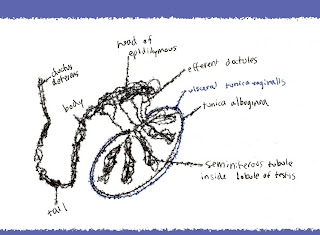 head of
epididymous
ductus
deferens
efferent ductules
visceral tunica vaginalis
body
tunica albuginea
seminiferous tubule
inside lobule of testis
tail